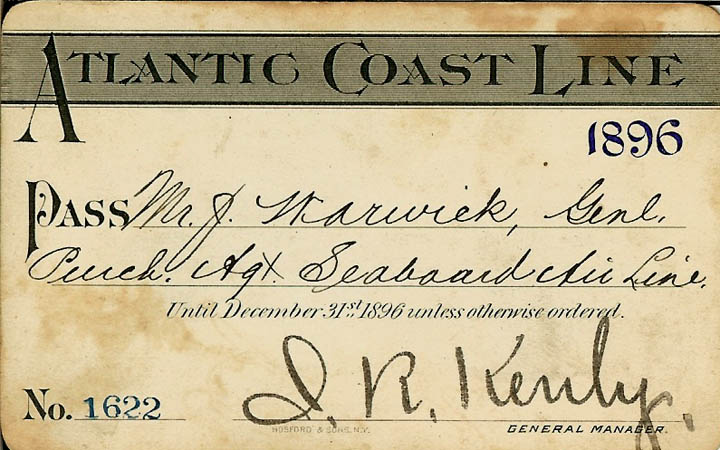 ATLANTIC COAST LINE
1896
PASS Mr. J. Warwick, Genl.
Purch. Agt. Seaboard Air Line.
Until December 31st 1896 unless otherwise ordered.
J. R. Kenly.
No. 1622
HOSFORD & SONS, N.Y.
GENERAL MANAGER.